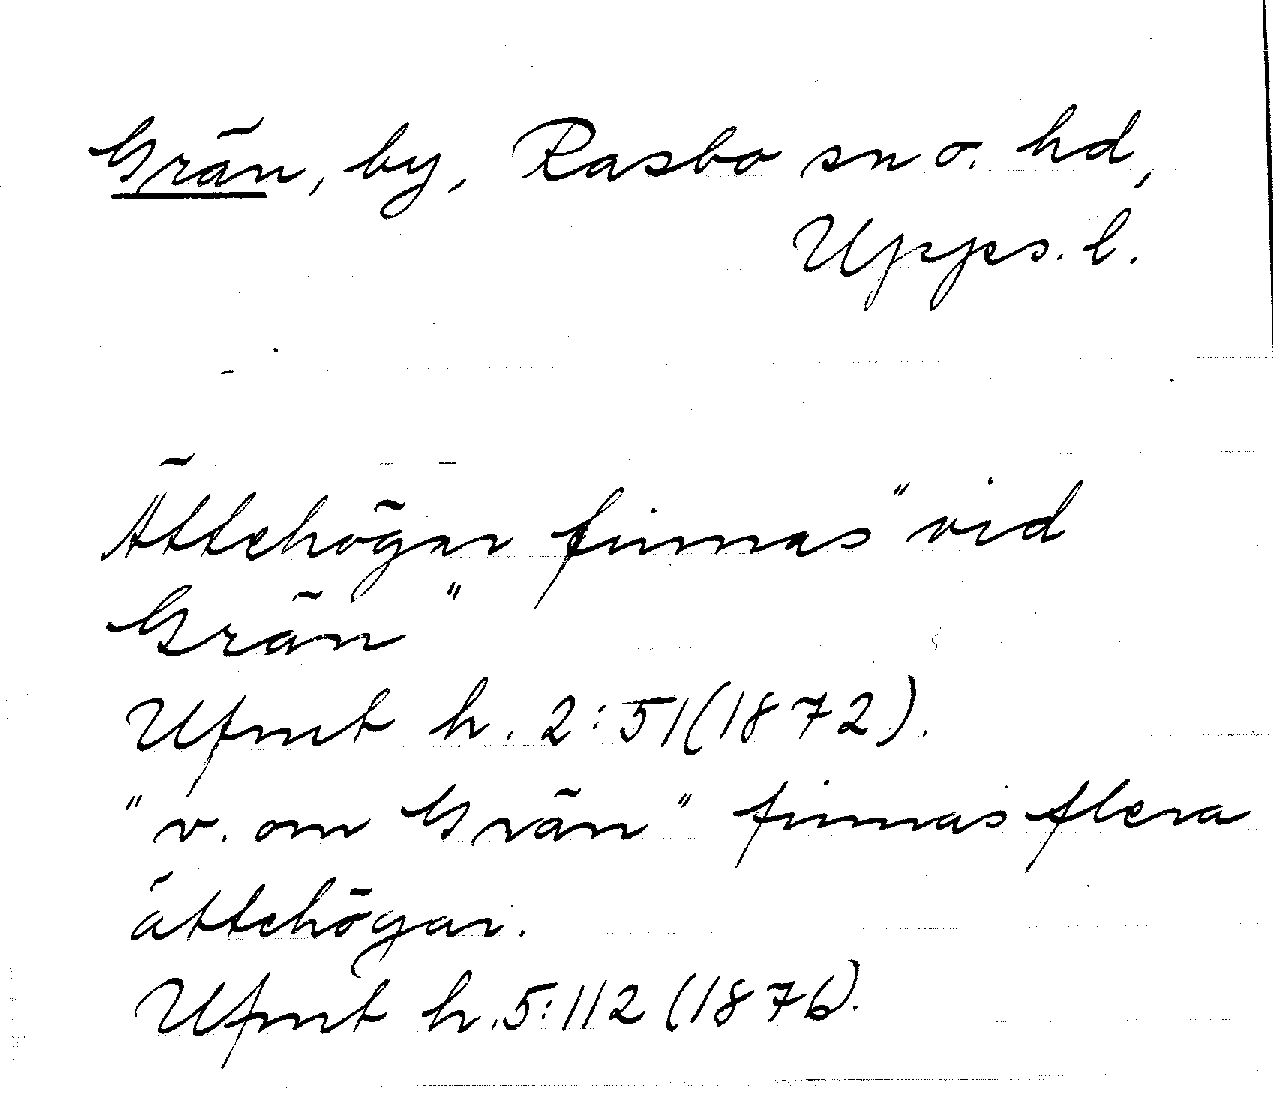 Grän, by, Rasbo sn o. hd,
Upps. l.
Ättehögar finnas "vid
Grän"
Ufmt h. 2:51(1872).
"v. om Grän" finnas flera
ättehögar.
Ufmt h.5:112 (1876).